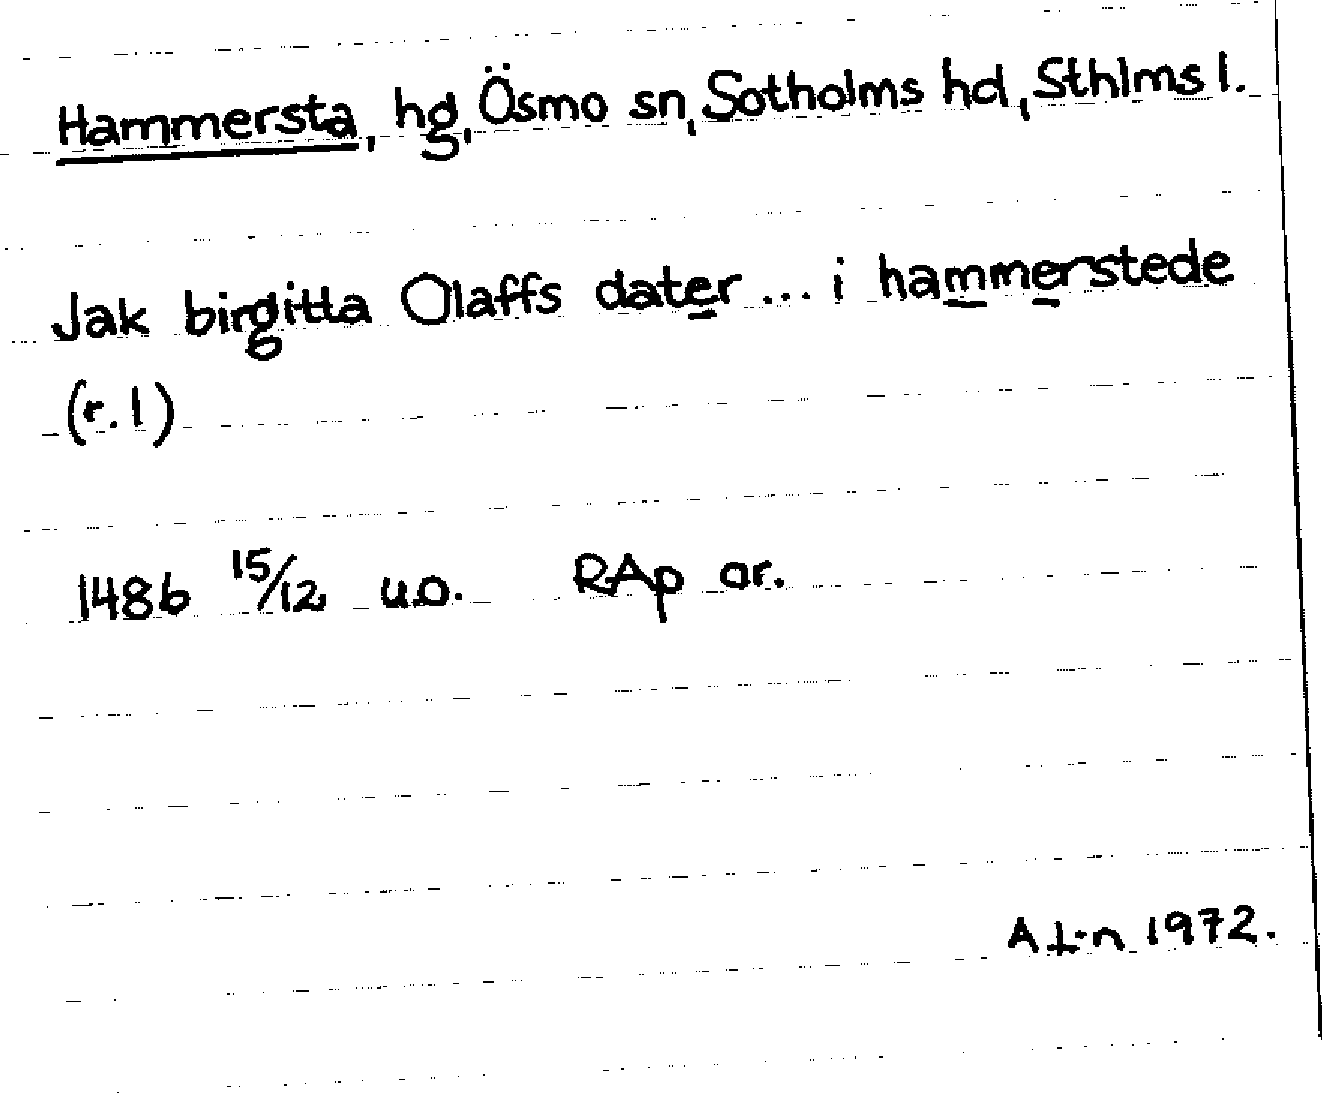 Hammersta, hg, Ösmo sn, Sotholms hd, Sthlms l.
Jak birgitta Olaffs dater ... i hammerstede
(r. 1)
1486 15/12 u.o. RAp or.
A L-n 1972.